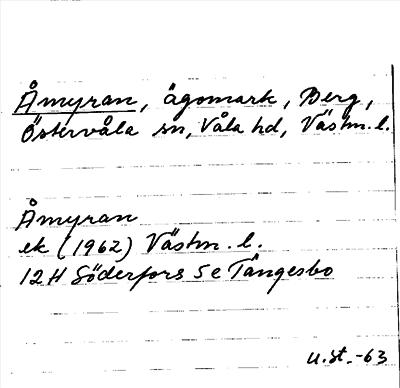 Åmyran, ägomark, Berg,
Östervåla sn, Våla hd, Västm.l.
Åmyran
ek (1962) Västm.l.
12H Söderfors 5e Tängesbo
u.st.-63